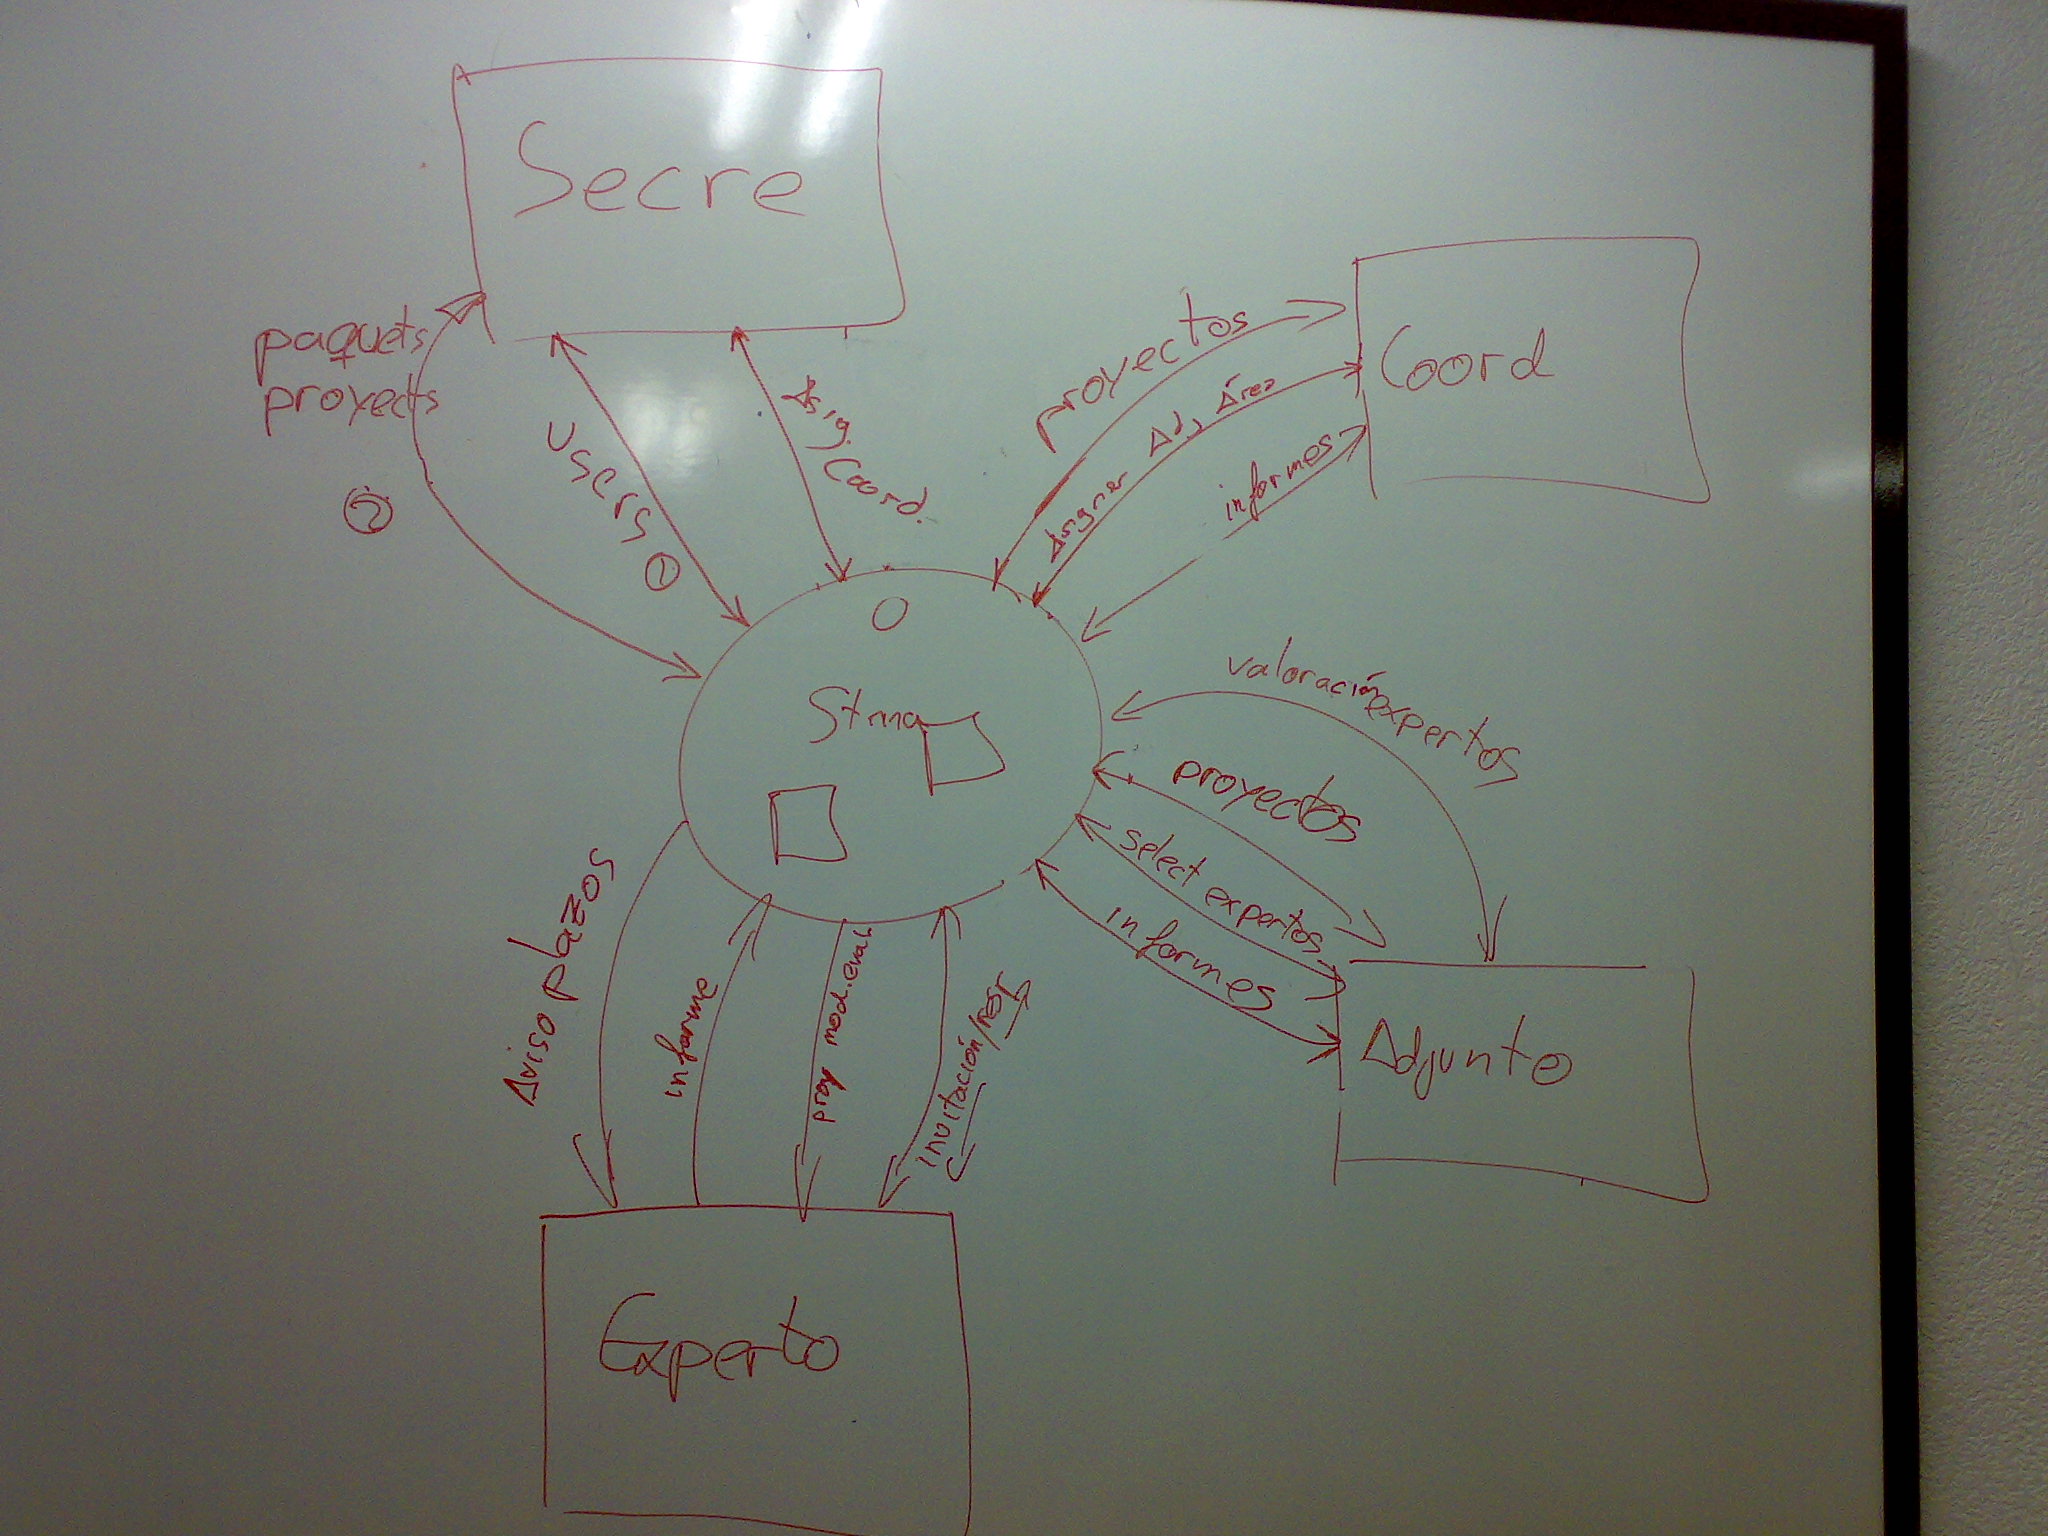 Secre
paquets
proyects
②
users ①
Asig. Coord.
proyectos
Asignar Adj. Área
informes
Coord
0
Stma
valoración expertos
proyectos
select expertos
informes
Adjunto
Aviso plazos
informe
proy mod. eval.
invitación/resp
Experto